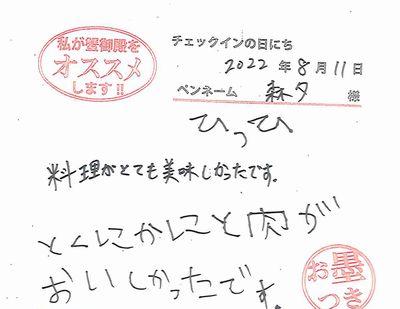 私が蟹御殿を
オススメ
します!!
チェックインの日にち
2022年8月11日
ペンネーム 森夕 様
ひっひ
料理がとても美味しかったです。
とくにかにと肉が
おいしかったです。
お墨
つき